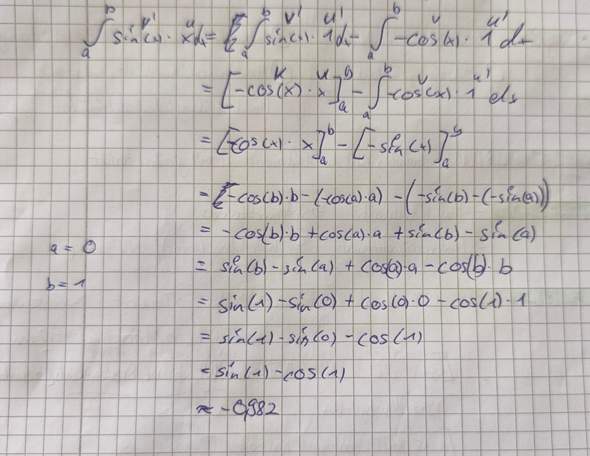 ∫ₐᵇ sin(x) · x dx = ∫ₐᵇ sin(x) · 1 dx − ∫ₐᵇ −cos(x) · 1 dx
= [−cos(x) · x]ₐᵇ − ∫ₐᵇ −cos(x) · 1 dx
= [−cos(x) · x]ₐᵇ − [−sin(x)]ₐᵇ
= −cos(b)·b − (−cos(a)·a) − (−sin(b) − (−sin(a)))
= −cos(b)·b + cos(a)·a + sin(b) − sin(a)
a = 0
= sin(b) − sin(a) + cos(a)·a − cos(b)·b
b = 1
= sin(1) − sin(0) + cos(0)·0 − cos(1)·1
= sin(1) − sin(0) − cos(1)
= sin(1) − cos(1)
≈ −0,982